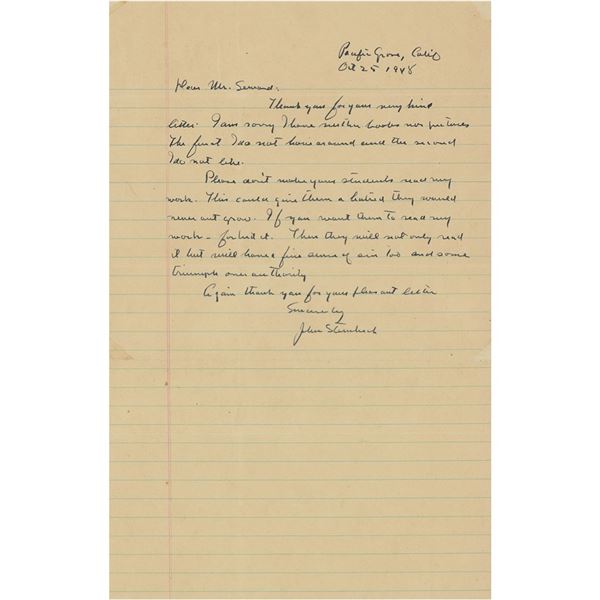 Pacific Grove, Calif
Oct 25 1948
Dear Mr.
Thank you for your very kind
letter. I am sorry I have neither books nor pictures
The first I do not have around and the second
I do not like.
Please don't make your students read my
work. This could give them a hatred they would
never out grow. If you want them to read my
work – forbid it. Then they will not only read
it but will have a fine sense of sin too and some
triumph over authority
Again thank you for your pleasant letter
Sincerely
John Steinbeck